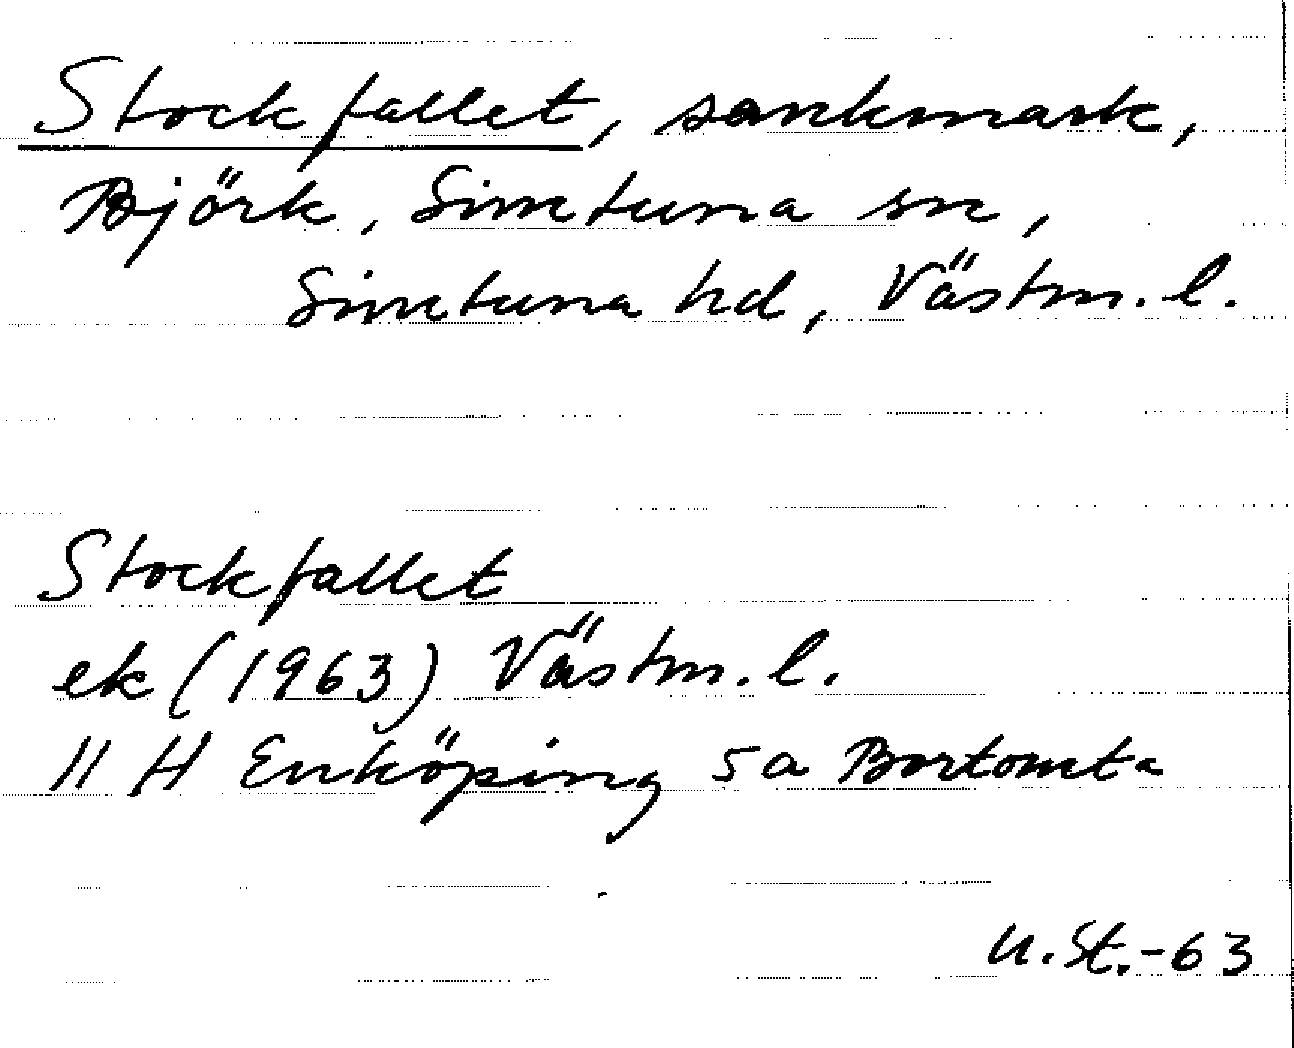 Stockfallet, sankmark,
Björk, Simtuna sn,
Simtuna hd, Västm. l.
Stockfallet
ek (1963) Västm. l.
11 H Enköping 5a Bortomta
U. St. -63